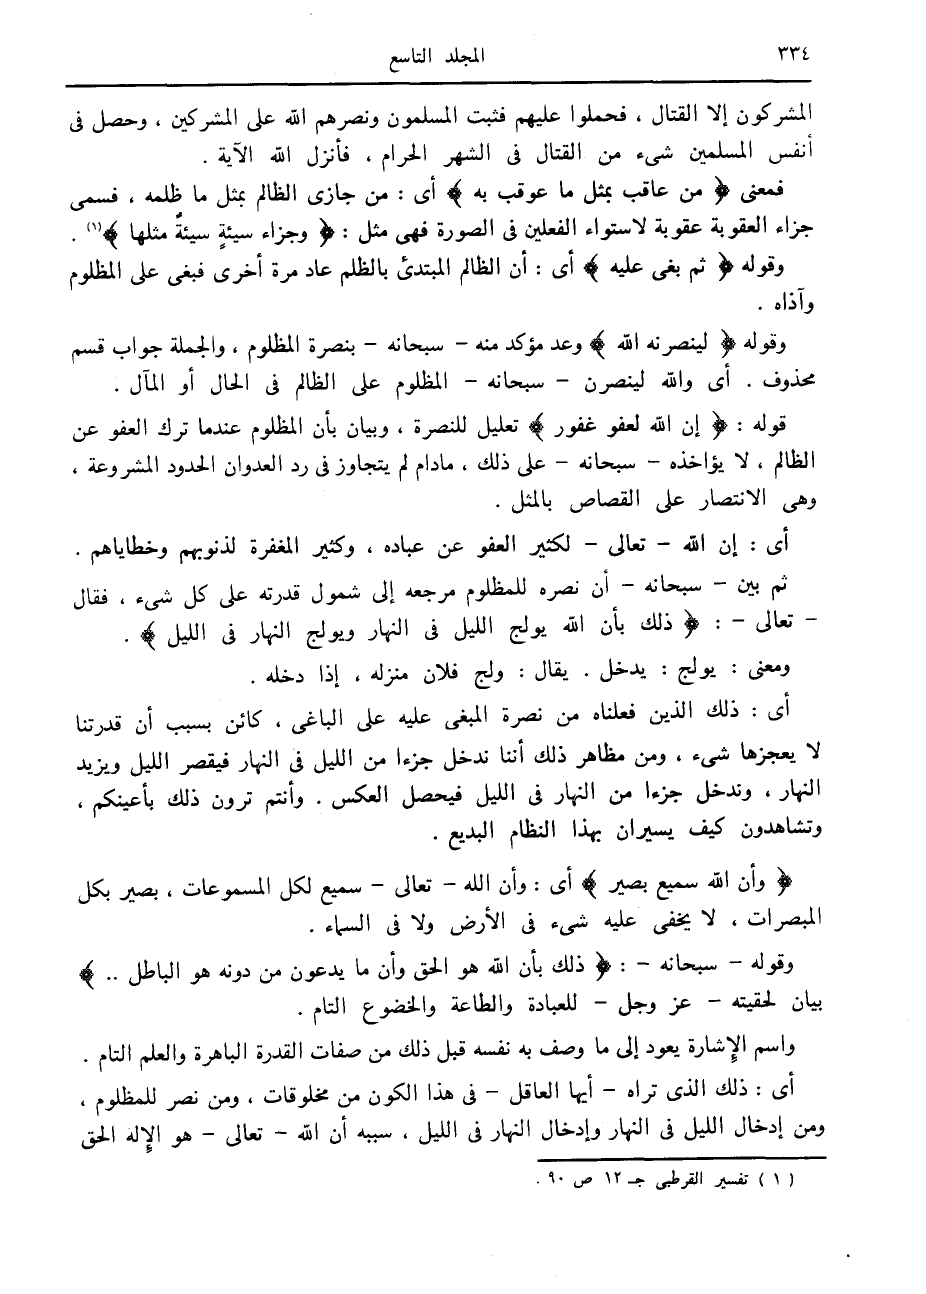 ٣٣٤ المجلد التاسع
المشركون إلا القتال ، فحملوا عليهم فثبت المسلمون ونصرهم الله على المشركين ، وحصل فى
أنفس المسلمين شىء من القتال فى الشهر الحرام ، فأنزل الله الآية .
فمعنى ﴿ من عاقب بمثل ما عوقب به ﴾ أى : من جازى الظالم بمثل ما ظلمه ، فسمى
جزاء العقوبة عقوبة لاستواء الفعلين فى الصورة فهى مثل : ﴿ وجزاء سيئةٍ سيئةٌ مثلها ﴾(١) .
وقوله ﴿ ثم بغى عليه ﴾ أى : أن الظالم المبتدئ بالظلم عاد مرة أخرى فبغى على المظلوم
وآذاه .
وقوله ﴿ لينصرنه الله ﴾ وعد مؤكد منه – سبحانه – بنصرة المظلوم ، والجملة جواب قسم
محذوف . أى والله لينصرن – سبحانه – المظلوم على الظالم فى الحال أو المآل .
قوله : ﴿ إن الله لعفو غفور ﴾ تعليل للنصرة ، وبيان بأن المظلوم عندما ترك العفو عن
الظالم ، لا يؤاخذه – سبحانه – على ذلك ، مادام لم يتجاوز فى رد العدوان الحدود المشروعة ،
وهى الانتصار على القصاص بالمثل .
أى : إن الله – تعالى – لكثير العفو عن عباده ، وكثير المغفرة لذنوبهم وخطاياهم .
ثم بين – سبحانه – أن نصره للمظلوم مرجعه إلى شمول قدرته على كل شىء ، فقال
– تعالى – : ﴿ ذلك بأن الله يولج الليل فى النهار ويولج النهار فى الليل ﴾ .
ومعنى : يولج : يدخل . يقال : ولج فلان منزله ، إذا دخله .
أى : ذلك الذين فعلناه من نصرة المبغى عليه على الباغى ، كائن بسبب أن قدرتنا
لا يعجزها شىء ، ومن مظاهر ذلك أننا ندخل جزءا من الليل فى النهار فيقصر الليل ويزيد
النهار ، وندخل جزءا من النهار فى الليل فيحصل العكس . وأنتم ترون ذلك بأعينكم ،
وتشاهدون كيف يسيران بهذا النظام البديع .
﴿ وأن الله سميع بصير ﴾ أى : وأن الله – تعالى – سميع لكل المسموعات ، بصير بكل
المبصرات ، لا يخفى عليه شىء فى الأرض ولا فى السماء .
وقوله – سبحانه – : ﴿ ذلك بأن الله هو الحق وأن ما يدعون من دونه هو الباطل .. ﴾
بيان لحقيته – عز وجل – للعبادة والطاعة والخضوع التام .
واسم الإشارة يعود إلى ما وصف به نفسه قبل ذلك من صفات القدرة الباهرة والعلم التام .
أى : ذلك الذى تراه – أيها العاقل – فى هذا الكون من مخلوقات ، ومن نصر للمظلوم ،
ومن إدخال الليل فى النهار وإدخال النهار فى الليل ، سببه أن الله – تعالى – هو الإله الحق
( ١ ) تفسير القرطبى جـ ١٢ ص ٩٠ .